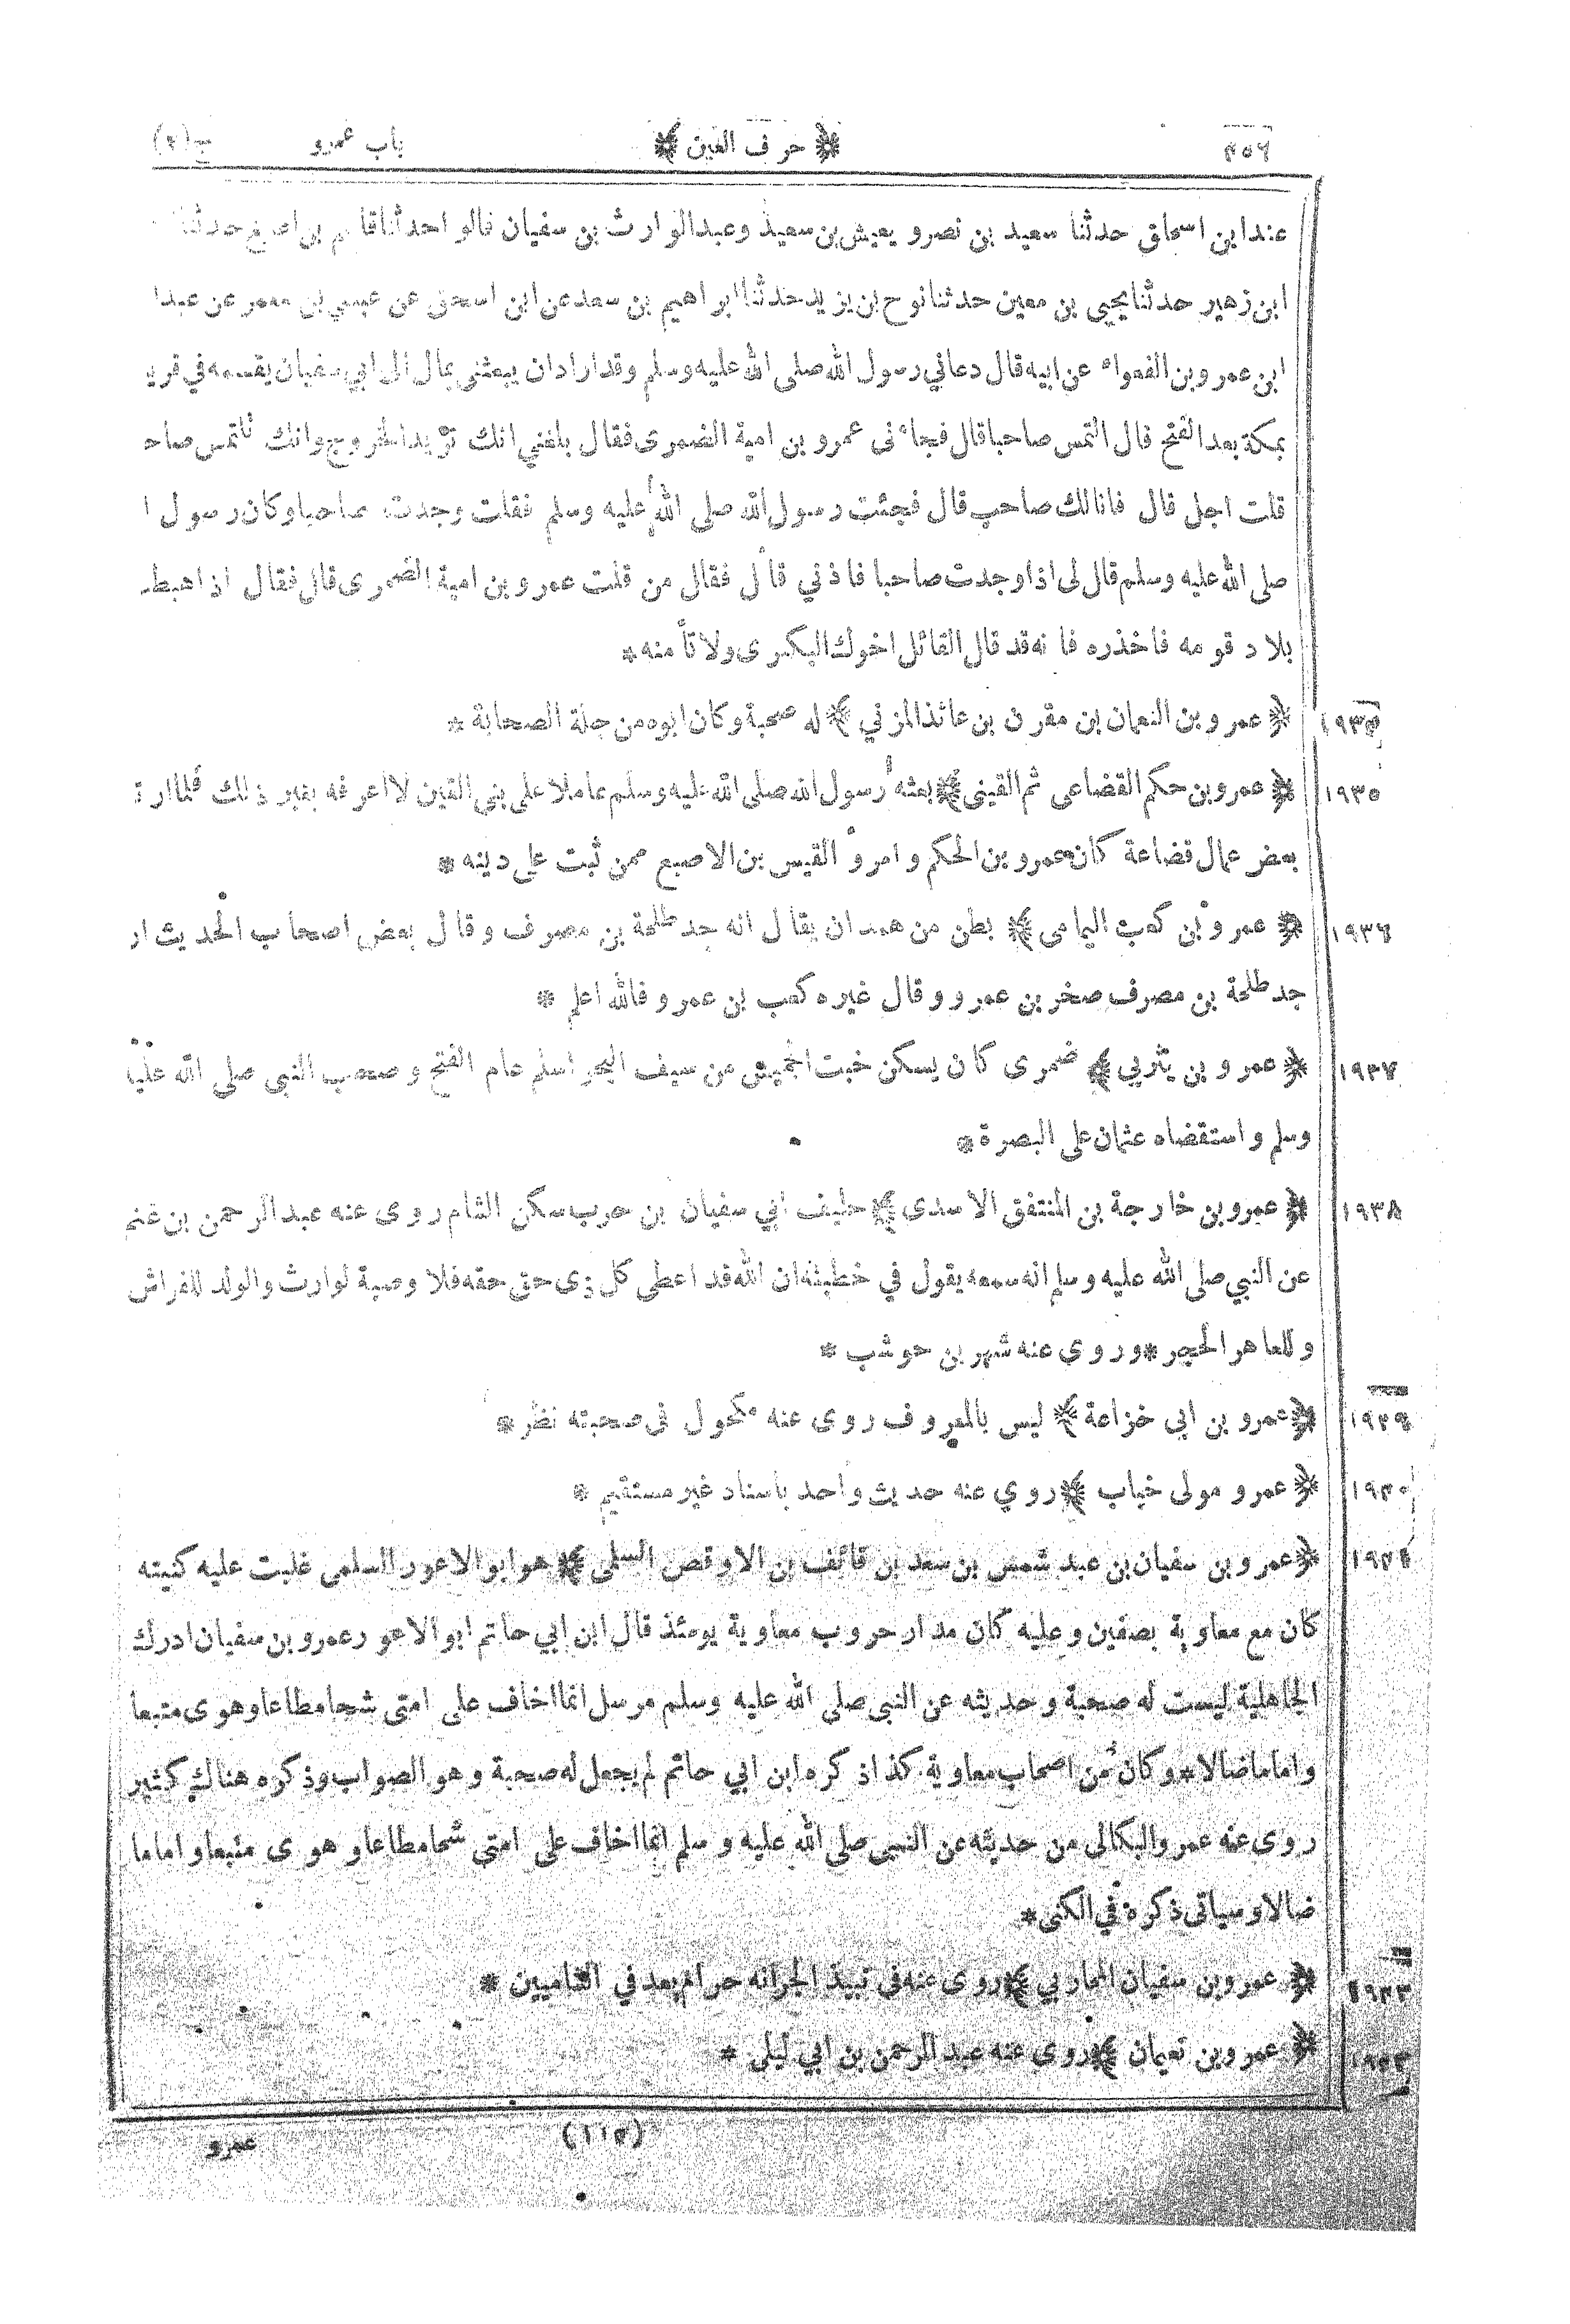 ٤٥٦ ﴿ حرف العين ﴾ باب عمرو ج(٢)
عندابن اسحاق حدثنا سعيد بن نصرو يعيش بن سعيد وعبدالوارث بن سفيان قالوا حدثنا قاسم بن اصبغ حدثنا
ابن زهير حدثنا يحيى بن معين حدثنا نوح بن يزيد حدثنا ابراهيم بن سعد عن ابن اسحق عن عيسى بن معمر عن عبدا
ابن عمرو بن الفغواء عن ابيه قال دعاني رسول الله صلى الله عليه وسلم وقد اراد ان يبعثنى بمال الى ابي سفيان يقسمه في قري
بمكة بعد الفتح قال التمس صاحبا قال فجاءنى عمرو بن امية الضمرى فقال بلغني انك تريد الخروج وانك تلتمس صاح
قلت اجل قال فانا لك صاحب قال فجئت رسول الله صلى الله عليه وسلم فقلت وجدت صاحبا وكان رسول ا
صلى الله عليه وسلم قال لى اذا وجدت صاحبا فاذني قال فقال من قلت عمرو بن امية الضمرى قال فقال اذا هبط
بلاد قومه فاحذره فانه قد قال القائل اخوك البكرى ولا تأمنه *
١٩٣٤ ﴿ عمرو بن النعمان بن مقرن بن عائذ المزني ﴾ له صحبة وكان ابوه من جلة الصحابة *
١٩٣٥ ﴿ عمرو بن حكم القضاعى ثم القينى ﴾ بعثه رسول الله صلى الله عليه وسلم عاملا على بني القين لا اعرفه بغير ذلك فلما ارت
بعض عمال قضاعة كان عمرو بن الحكم وامرؤ القيس بن الاصبع ممن ثبت على دينه *
١٩٣٦ ﴿ عمرو بن كعب اليامى ﴾ بطن من همدان يقال انه جد طلحة بن مصرف وقال بعض اصحاب الحديث ان
جد طلحة بن مصرف صخر بن عمرو وقال غيره كعب بن عمرو فالله اعلم *
١٩٣٧ ﴿ عمرو بن يثربي ﴾ ضمرى كان يسكن خبت الجميش من سيف البحر اسلم عام الفتح وصحب النبى صلى الله عليه
وسلم واستقضاه عثمان على البصرة *
١٩٣٨ ﴿ عمرو بن خارجة بن المنتفق الاسدى ﴾ حليف ابي سفيان بن حرب سكن الشام روى عنه عبد الرحمن بن غنم
عن النبي صلى الله عليه وسلم انه سمعه يقول في خطبته ان الله قد اعطى كل ذى حق حقه فلا وصية لوارث والولد للفراش
وللعاهر الحجر * وروى عنه شهر بن حوشب *
١٩٣٩ ﴿ عمرو بن ابى خزاعة ﴾ ليس بالمعروف روى عنه مكحول فى صحبته نظر *
١٩٤٠ ﴿ عمرو مولى خباب ﴾ روي عنه حديث واحد باسناد غير مستقيم *
١٩٤١ ﴿ عمرو بن سفيان بن عبد شمس بن سعد بن قائف بن الاوقص السلمى ﴾ هو ابو الاعور السلمى غلبت عليه كنيته
كان مع معاوية بصفين وعليه كان مدار حروب معاوية يومئذ قال ابن ابي حاتم ابو الاعور عمرو بن سفيان ادرك
الجاهلية ليست له صحبة وحديثه عن النبى صلى الله عليه وسلم مرسل انما اخاف على امتى شحا مطاعا وهوى متبعا
واماما ضالا * وكان من اصحاب معاوية كذا ذكره ابن ابي حاتم لم يجعل له صحبة وهو الصواب وذكره هناك كثير
روى عنه عمرو البكالى من حديثه عن النبى صلى الله عليه وسلم انما اخاف على امتى شحا مطاعا وهوى متبعا واماما
ضالا وسياتى ذكره في الكنى *
١٩٤٢ ﴿ عمرو بن سفيان المحاربي ﴾ روى عنه فى نبيذ الجر انه حرام يعد في الشاميين *
١٩٤٣ ﴿ عمرو بن نعيمان ﴾ روى عنه عبد الرحمن بن ابي ليلى *
(١١٤) عمرو